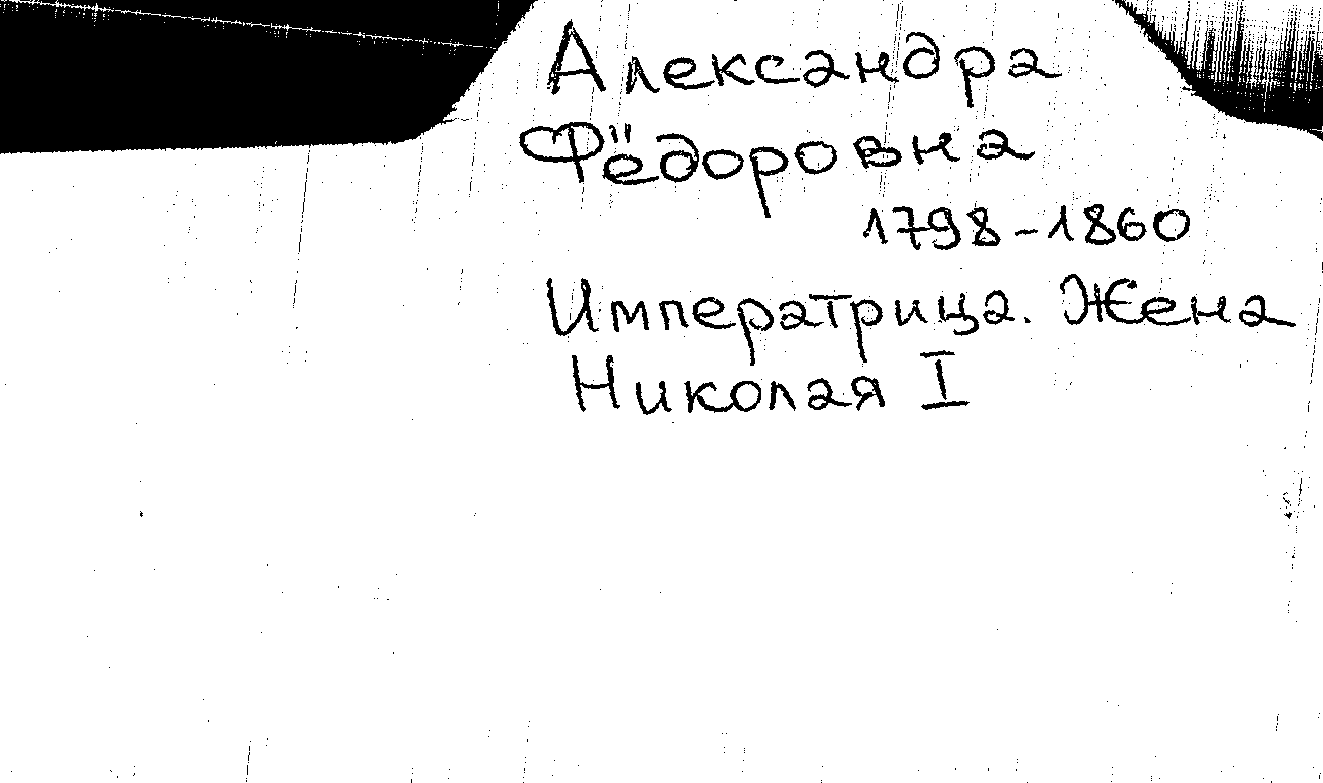 Александра
Фёдоровна
1798-1860
Императрица. Жена
Николая I